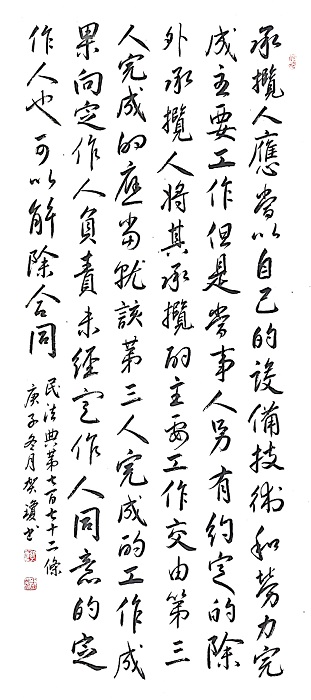 承攬人應當以自己的設備技術和勞力完
成主要工作但是當事人另有約定的除
外承攬人將其承攬的主要工作交由第三
人完成的應當就該第三人完成的工作成
果向定作人負責未經定作人同意的定
作人也可以解除合同
民法典第七百七十二條
庚子冬月賀瓊書